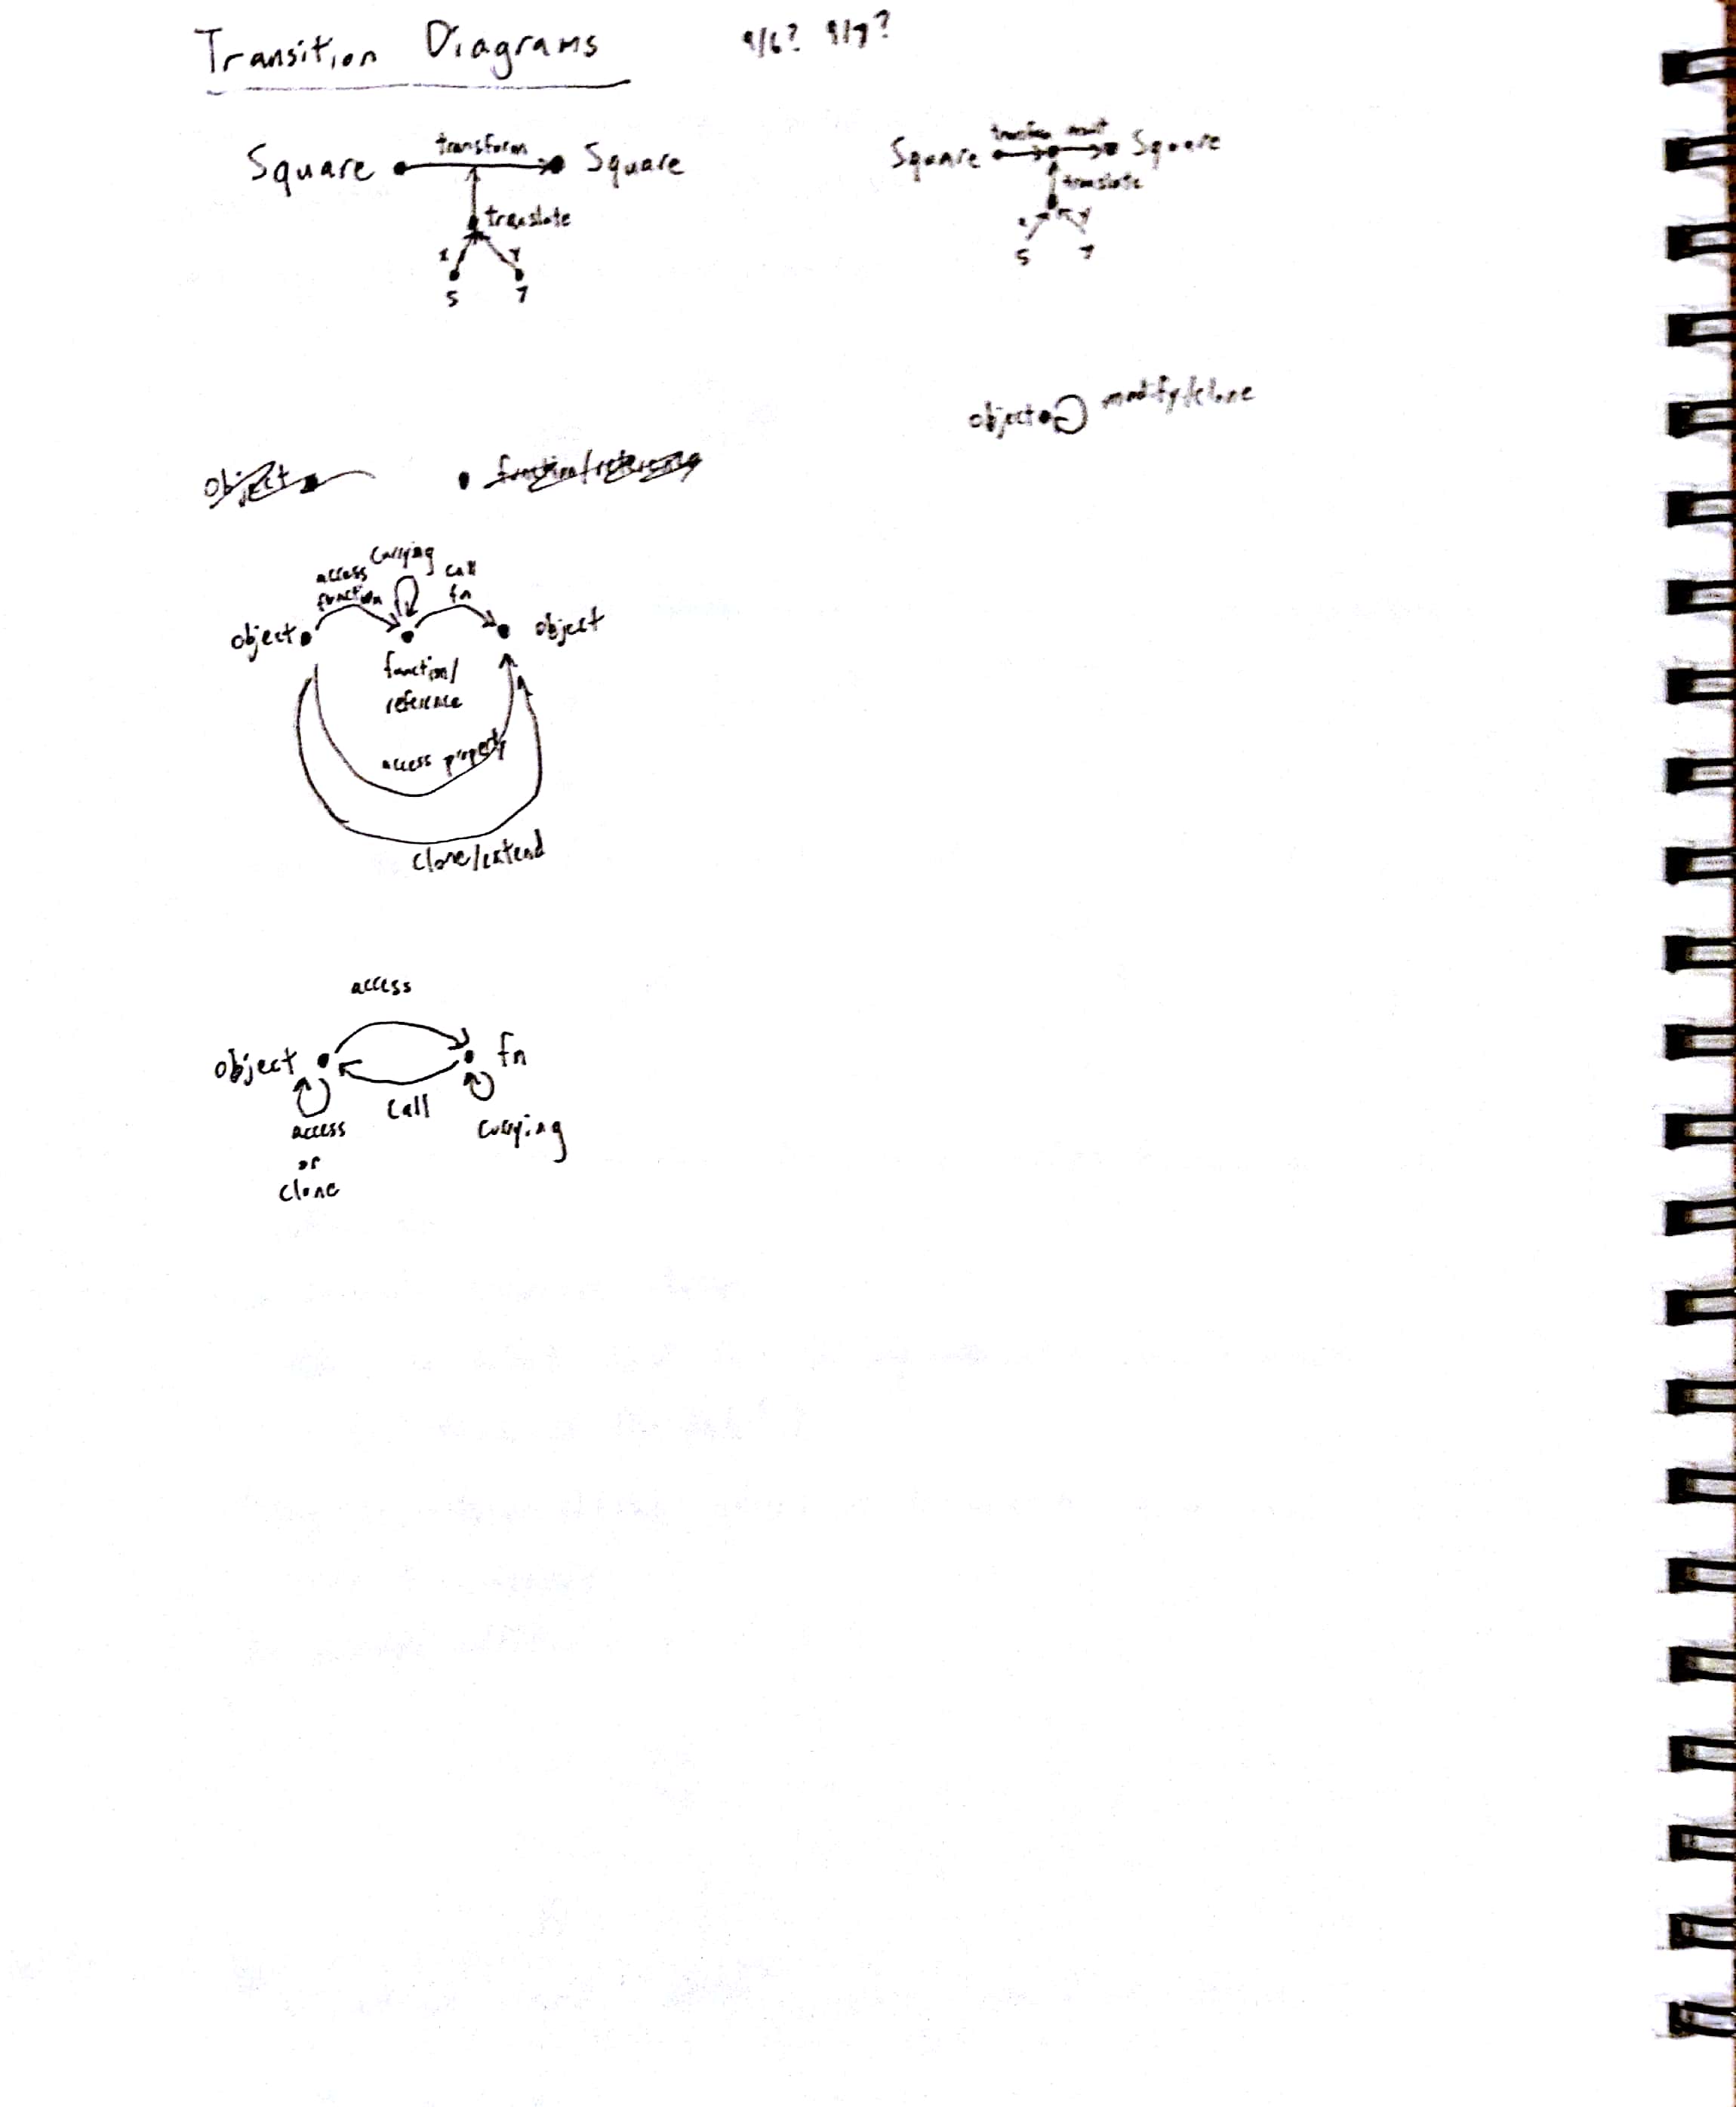 Transition Diagrams 9/6? 9/7?
Square transform Square
translate
x y
5 7
Square transform Square
translate
x y
5 7
object modify/clone
object function/reference
access currying call
function fn
object object
function/
reference
access property
clone/extend
access
object fn
call
access currying
or
clone